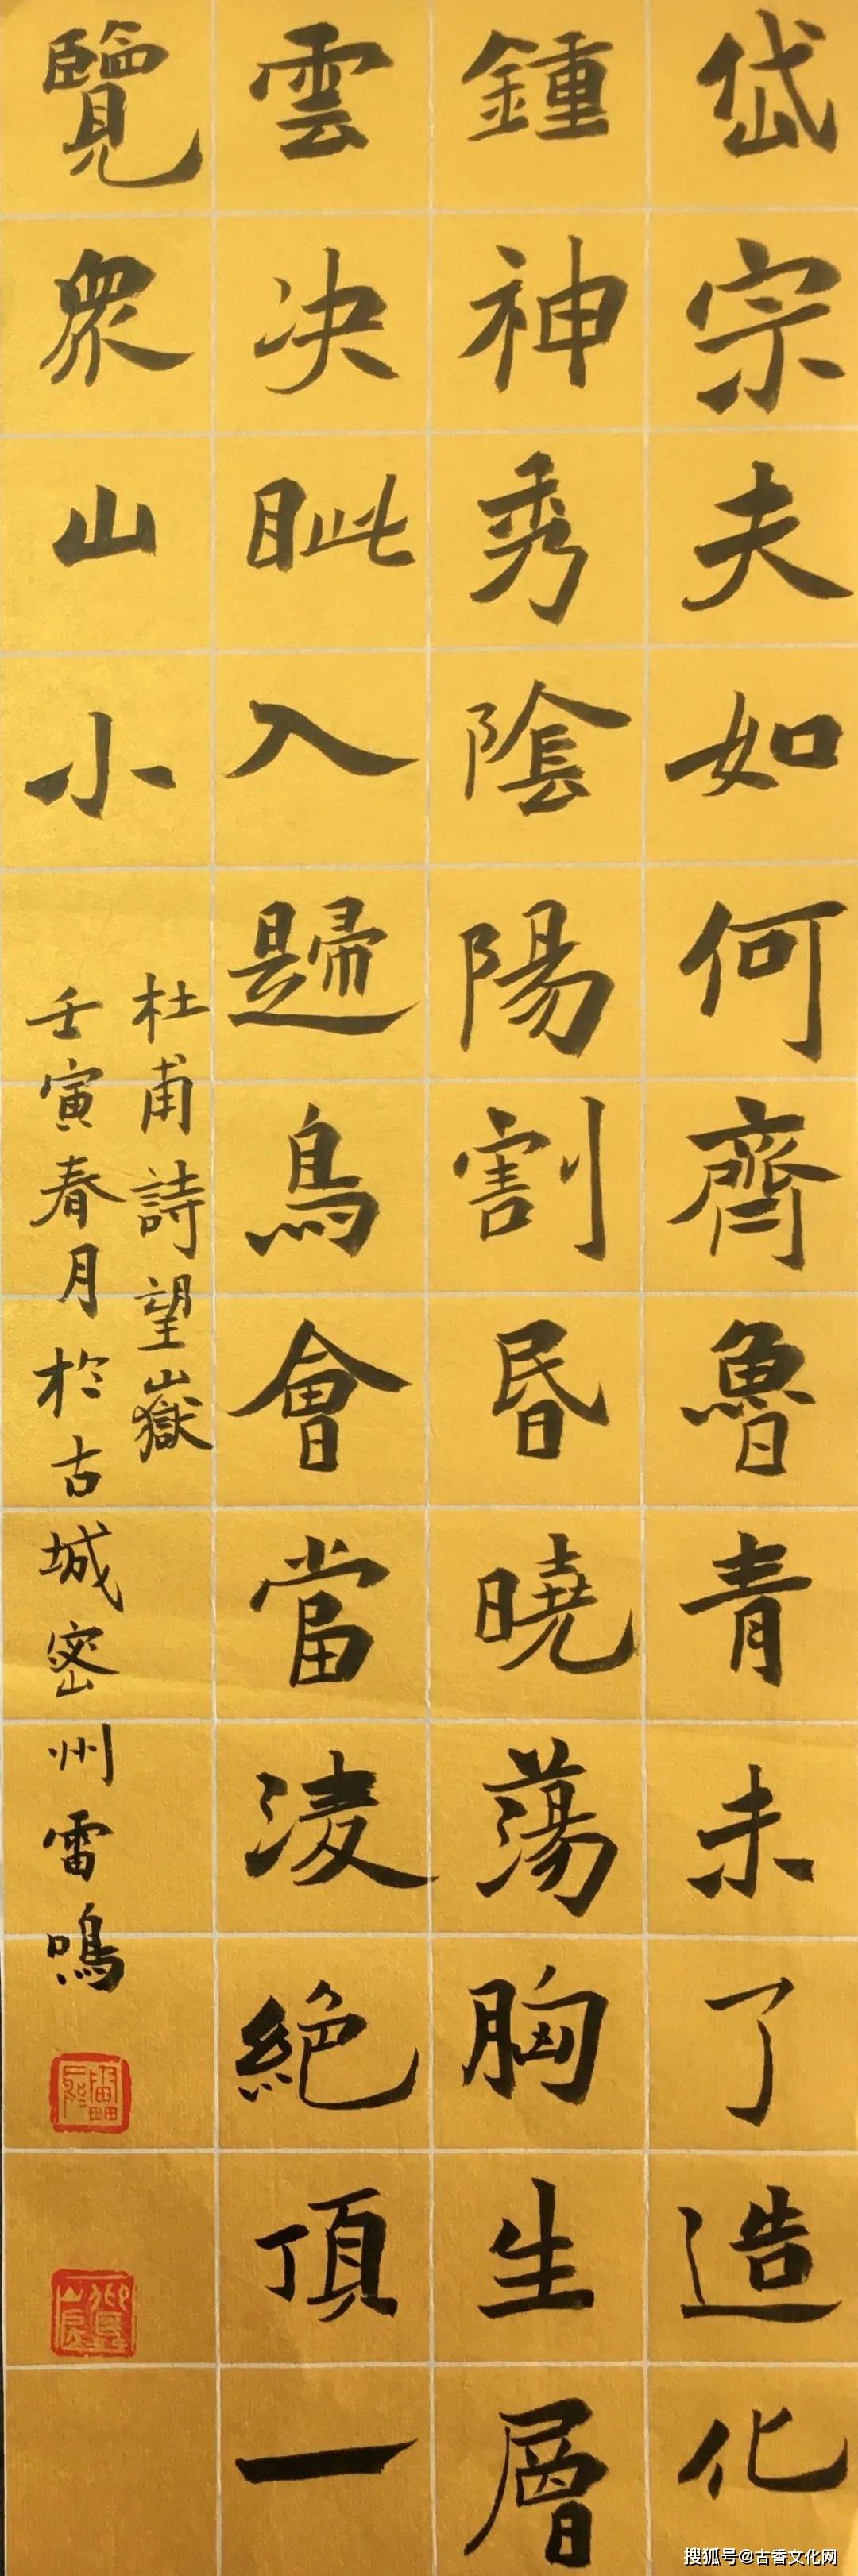 岱宗夫如何齊魯青未了造化
鍾神秀陰陽割昏曉蕩胸生層
雲決眦入歸鳥會當凌絕頂一
覽眾山小
杜甫詩望嶽
壬寅春月於古城密州雷鳴
搜狐号@古香文化网